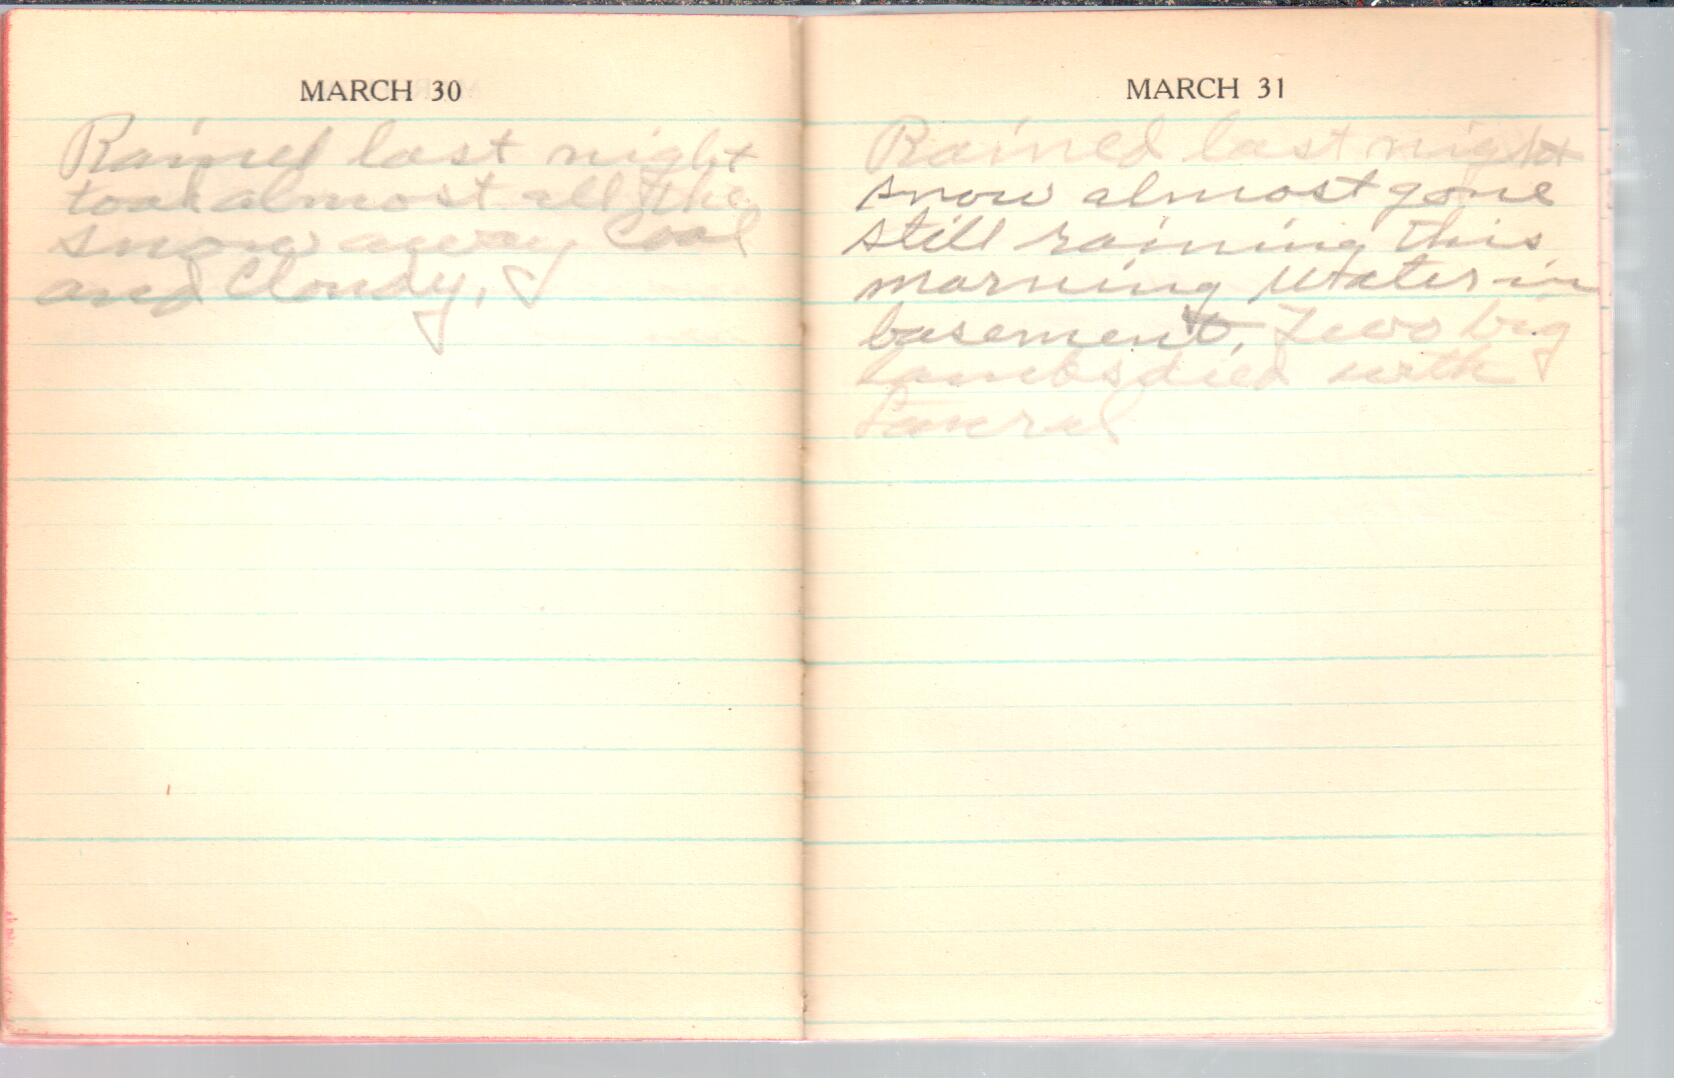 MARCH 30
Rained last night
took almost all the
snow away Cool
and Cloudy.
MARCH 31
Rained last night
snow almost gone
still raining this
morning Water in
basement. Two big
Lambs died with